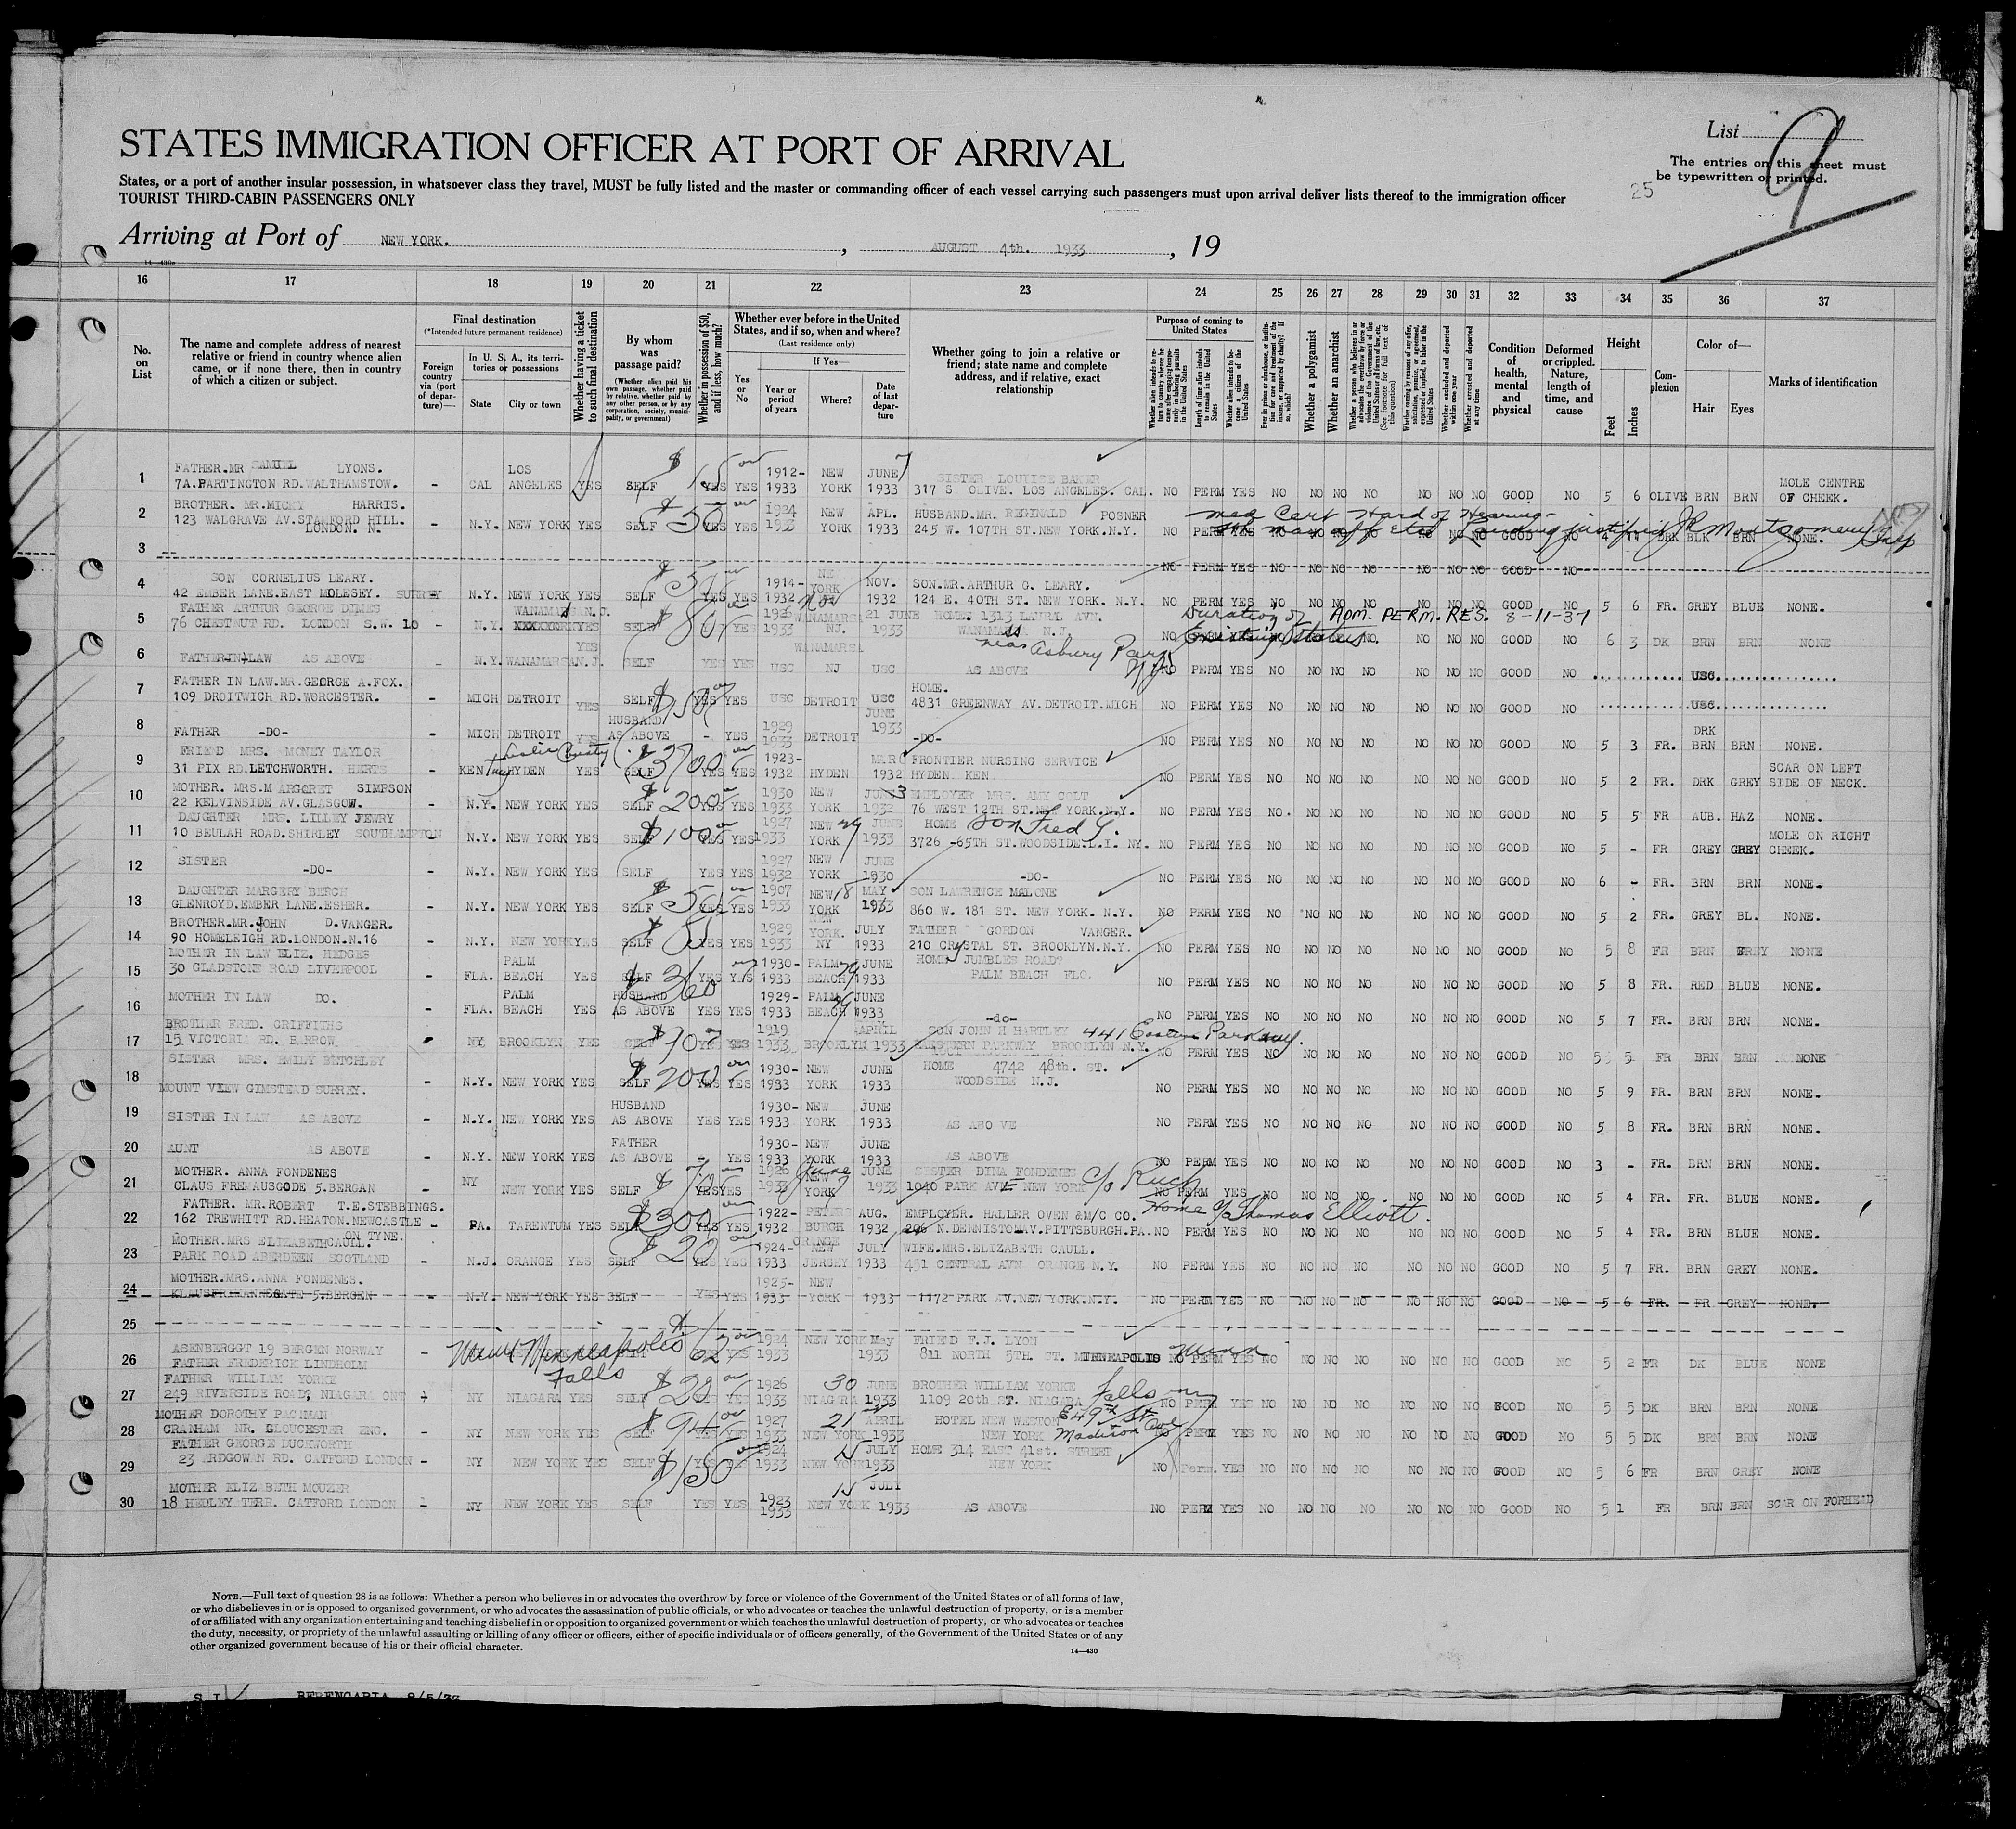 List 9
STATES IMMIGRATION OFFICER AT PORT OF ARRIVAL
The entries on this sheet must be typewritten or printed.
25
States, or a port of another insular possession, in whatsoever class they travel, MUST be fully listed and the master or commanding officer of each vessel carrying such passengers must upon arrival deliver lists thereof to the immigration officer
TOURIST THIRD-CABIN PASSENGERS ONLY
Arriving at Port of NEW YORK. , AUGUST 4th. 1933 , 19
16 17 18 19 20 21 22 23 24 25 26 27 28 29 30 31 32 33 34 35 36 37
No. on List
The name and complete address of nearest relative or friend in country whence alien came, or if none there, then in country of which a citizen or subject.
Final destination
(*Intended future permanent residence)
Foreign country via (port of departure)—
In U. S. A., its territories or possessions
State
City or town
Whether having a ticket to such final destination
By whom was passage paid?
(Whether alien paid his own passage, whether paid by relative, whether paid by any other person, or by any corporation, society, municipality, or government)
Whether in possession of $50, and if less, how much?
Whether ever before in the United States, and if so, when and where?
(Last residence only)
Yes or No
If Yes—
Year or period of years
Where?
Date of last departure
Whether going to join a relative or friend; state name and complete address, and if relative, exact relationship
Purpose of coming to United States
Length of time alien intends to remain in the United States
Whether alien intends to become a citizen of the United States
Whether a polygamist
Whether an anarchist
Whether excluded and deported within one year
Whether arrested and deported at any time
Condition of health, mental and physical
Deformed or crippled. Nature, length of time, and cause
Height
Feet
Inches
Complexion
Color of—
Hair
Eyes
Marks of identification
1 FATHER.MR SAMUEL LYONS. 7A.PARTINGTON RD.WALTHAMSTOW. - CAL LOS ANGELES YES SELF $15 00 YES YES 1912-1933 NEW YORK JUNE 1933 SISTER LOUISE BAKER 317 S OLIVE. LOS ANGELES. CAL. NO PERM YES NO NO NO NO NO NO NO GOOD NO 5 6 OLIVE BRN BRN MOLE CENTRE OF CHEEK.
2 BROTHER. MR.MICKY HARRIS. 123 WALGRAVE AV.STAMFORD HILL. LONDON. N. - N.Y. NEW YORK YES SELF $50 00 YES YES 1924 1933 NEW YORK APL. 1933 HUSBAND.MR. REGINALD POSNER 245 W. 107TH ST.NEW YORK.N.Y. NO PERM YES NO NO NO NO NO NO NO GOOD NO 4 11 DRK BLK BRN NONE.
med Cert Hard of Hearing - Landing justified JR Montgomery Insp
3 -- NO PERM YES NO NO NO NO NO NO NO GOOD NO
4 SON CORNELIUS LEARY. 42 EMBER LANE.EAST MOLESEY. SURREY N.Y. NEW YORK YES SELF YES YES 1914-1932 NEW YORK NOV. 1932 SON.MR.ARTHUR G. LEARY. 124 E. 40TH ST. NEW YORK. N.Y. NO PERM YES NO NO NO NO NO NO NO GOOD NO 5 6 FR. GREY BLUE NONE.
5 FATHER ARTHUR GEORGE DIMES 76 CHESTNUT RD. LONDON S.W. 10 - N.Y. WANAMARSA N.J. YES SELF $80 00 YES YES 1926 1933 WANAMARSA NJ. 21 JUNE 1933 HOME. 1313 LAUREL AVN. WANAMASSA N.J. near Asbury Park NJ NO Duration of Existing Status ADM. PERM. RES. 8-11-37 NO NO GOOD NO 6 3 DK BRN BRN NONE
6 FATHER-IN-LAW AS ABOVE - N.Y. WANAMARSA N.J. YES SELF YES YES USC WANAMARSA NJ USC AS ABOVE NO PERM YES NO NO NO NO NO NO NO GOOD NO USC.
7 FATHER IN LAW.MR.GEORGE A.FOX. 109 DROITWICH RD.WORCESTER. - MICH DETROIT YES SELF $150 00 YES YES USC DETROIT USC HOME. 4831 GREENWAY AV.DETROIT.MICH NO PERM YES NO NO NO NO NO NO NO GOOD NO USC.
8 FATHER -DO- - MICH DETROIT YES HUSBAND AS ABOVE - YES 1929 1933 DETROIT JUNE 1933 -DO- NO PERM YES NO NO NO NO NO NO NO GOOD NO 5 3 FR. DRK BRN BRN NONE.
9 FRIEND MRS. MONEY TAYLOR 31 PIX RD.LETCHWORTH. HERTS - KEN HYDEN Leslie County YES SELF YES YES 1923-1932 HYDEN MARC 1932 FRONTIER NURSING SERVICE HYDEN. KEN. NO PERM YES NO NO NO NO NO NO NO GOOD NO 5 2 FR. DRK GREY SCAR ON LEFT SIDE OF NECK.
10 MOTHER. MRS.MARGARET SIMPSON 22 KELVINSIDE AV.GLASGOW. - N.Y. NEW YORK YES SELF $200 00 YES YES 1930 1933 NEW YORK JUNE 3 1932 EMPLOYER MRS. AMY COLT 76 WEST 12TH ST.NEW YORK.N.Y. NO PERM YES NO. NO NO NO NO NO NO GOOD NO 5 5 FR AUB. HAZ NONE.
11 DAUGHTER MRS. LILLEY FEWRY 10 BEULAH ROAD.SHIRLEY SOUTHAMPTON - N.Y. NEW YORK YES SELF $100 00 YES YES 1927 1933 NEW YORK 29 JUNE 1933 HOME son Fred G. 3726 -65TH ST.WOODSIDE.L.I. NY. NO PERM YES NO NO NO NO NO NO NO GOOD NO 5 - FR GREY GREY MOLE ON RIGHT CHEEK.
12 SISTER -DO- - N.Y. NEW YORK YES SELF YES YES 1927 1932 NEW YORK JUNE 1930 -DO- NO PERM YES NO NO NO NO NO NO NO GOOD NO 6 - FR. BRN BRN NONE.
13 DAUGHTER MARGERY BERCH GLENROYD.EMBER LANE.ESHER. - N.Y. NEW YORK YES SELF YES YES 1907 1933 NEW YORK 18 MAY 1933 SON LAWRENCE MALONE 860 W. 181 ST. NEW YORK. N.Y. NO PERM YES NO NO NO NO NO NO NO GOOD NO 5 2 FR. GREY BL. NONE.
14 BROTHER.MR.JOHN D.VANGER. 90 HOMELEIGH RD.LONDON.N.16 - N.Y. NEW YORK YES SELF $85 YES YES 1929 1933 NEW YORK. NY JULY 1933 FATHER GORDON VANGER. 210 CRYSTAL ST. BROOKLYN.N.Y. NO PERM YES NO NO NO NO NO NO NO GOOD NO 5 8 FR BRN GREY NONE
15 MOTHER IN LAW ELIZ. HEDGES 30 GLADSTONE ROAD LIVERPOOL - FLA. PALM BEACH YES SELF $360 00 YES YES 1930-1933 PALM BEACH 29 JUNE 1933 HOME JUMBLES ROAD? PALM BEACH FLO. NO PERM YES NO NO NO NO NO NO NO GOOD NO 5 8 FR. RED BLUE NONE.
16 MOTHER IN LAW DO. - FLA. PALM BEACH YES HUSBAND AS ABOVE YES YES 1929-1933 PALM BEACH 29 JUNE 1933 -do- NO PERM YES NO NO NO NO NO NO NO GOOD NO 5 7 FR. BRN BRN NONE.
17 BROTHER FRED. GRIFFITHS 15 VICTORIA RD. BARROW - NY BROOKLYN YES SELF $70 YES YES 1919 1933 BROOKLYN APRIL 1933 SON JOHN H HARTLEY 441 Eastern Parkway. EASTERN PARKWAY BROOKLYN N.Y. NO PERM YES NO NO NO NO NO NO NO GOOD NO 5 5 FR BRN BRN NONE
18 SISTER MRS. EMILY BETCHLEY MOUNT VIEW GIMSTEAD SURREY. - N.Y. NEW YORK YES SELF $200 00 YES YES 1930-1933 NEW YORK JUNE 1933 HOME 4742 48th. ST. WOODSIDE N.J. NO PERM YES NO NO NO NO NO NO NO GOOD NO 5 9 FR. BRN BRN NONE.
19 SISTER IN LAW AS ABOVE - N.Y. NEW YORK YES HUSBAND AS ABOVE YES YES 1930-1933 NEW YORK JUNE 1933 AS ABOVE NO PERM YES NO NO NO NO NO NO NO GOOD NO 5 8 FR. BRN BRN NONE.
20 AUNT AS ABOVE - N.Y. NEW YORK YES FATHER AS ABOVE - YES 1930-1933 NEW YORK JUNE 1933 AS ABOVE NO PERM YES NO NO NO NO NO NO NO GOOD NO 3 - FR. BRN BRN NONE.
21 MOTHER. ANNA FONDENES CLAUS FREMAUSGODE 5.BERGAN - NY NEW YORK YES SELF YES YES 1926 1933 NEW YORK June JUNE 1933 SISTER DINA FONDENES c/o Ruch 1040 PARK AVE NEW YORK NO PERM YES NO NO NO NO NO NO NO GOOD NO 5 4 FR. FR. BLUE NONE.
22 FATHER. MR.ROBERT T.E.STEBBINGS. 162 TREWHITT RD.HEATON.NEWCASTLE ON TYNE. - PA. TARENTUM YES SELF $300 00 YES YES 1922-1932 PETERS BURGH AUG. 1932 EMPLOYER. HALLER OVEN &M/C CO. Home c/o Thomas Elliott. 206 N.DENNISTON AV.PITTSBURGH.PA. NO PERM YES NO NO NO NO NO NO NO GOOD NO 5 4 FR. BRN BLUE NONE.
23 MOTHER.MRS ELIZABETH CAULL. PARK ROAD ABERDEEN SCOTLAND - N.J. ORANGE YES SELF $20 00 YES YES 1924-1933 ORANGE NEW JERSEY JULY 1933 WIFE.MRS.ELIZABETH CAULL. 451 CENTRAL AVN. ORANGE N.Y. NO PERM YES NO NO NO NO NO NO NO GOOD NO 5 7 FR. BRN GREY NONE.
24 MOTHER.MRS.ANNA FONDENES. 5.BERGEN - N.Y. NEW YORK YES SELF YES YES 1925-1933 NEW YORK 1933 1172 PARK AV.NEW YORK.N.Y. NO PERM YES NO NO NO NO NO NO NO GOOD NO 5 6 FR. FR GREY NONE.
25
26 ASENBERGGT 19 BERGEN NORWAY FATHER FREDERICK LINDHOLM - Minn Minneapolis $62 00 YES 1924 1933 NEW YORK May 1933 FRIEND F.J. LYON 811 NORTH 5TH. ST. MINNEAPOLIS Minn NO PERM YES NO NO NO NO NO NO NO GOOD NO 5 2 FR DK BLUE NONE
27 FATHER WILLIAM YORKE 249 RIVERSIDE ROAD, NIAGARA ONT NY NIAGARA Falls YES SELF $20 00 YES YES 1926 1933 NIAGARA 30 JUNE 1933 BROTHER WILLIAM YORKE 1109 20th ST. NIAGARA Falls ny NO PERM YES NO NO NO NO NO NO NO GOOD NO 5 5 DK BRN BRN NONE
28 MOTHER DOROTHY PACKMAN CRANHAM NR. GLOUCESTER ENG. - NY NEW YORK YES SELF YES YES 1927 1933 NEW YORK 21 APRIL 1933 HOTEL NEW WESTON E 49th St NEW YORK Madison Ave NO PERM YES NO NO NO NO NO NO NO GOOD NO 5 5 DK BRN BRN NONE
29 FATHER GEORGE DUCKWORTH 23 ARDGOWAN RD. CATFORD LONDON - NY NEW YORK YES SELF $150 00 YES YES 1924 1933 NEW YORK 15 JULY 1933 HOME 314 EAST 41st. STREET NEW YORK NO Perm. YES NO NO NO NO NO NO NO GOOD NO 5 6 FR BRN GREY NONE
30 MOTHER ELIZ BETH MOUZER 18 HEDLEY TERR. CATFORD LONDON - NY NEW YORK YES SELF YES YES 1923 1933 NEW YORK 15 JULY 1933 AS ABOVE NO PERM YES NO NO NO NO NO NO NO GOOD NO 5 1 FR BRN BRN SCAR ON FORHEAD
NOTE.—Full text of question 28 is as follows: Whether a person who believes in or advocates the overthrow by force or violence of the Government of the United States or of all forms of law,
or who disbelieves in or is opposed to organized government, or who advocates the assassination of public officials, or who advocates or teaches the unlawful destruction of property, or is a member
of or affiliated with any organization entertaining and teaching disbelief in or opposition to organized government or which teaches the unlawful destruction of property, or who advocates or teaches
the duty, necessity, or propriety of the unlawful assaulting or killing of any officer or officers, either of specific individuals or of officers generally, of the Government of the United States or of any
other organized government because of his or their official character.
14—430
S.I. BERENGARIA 8/5/33